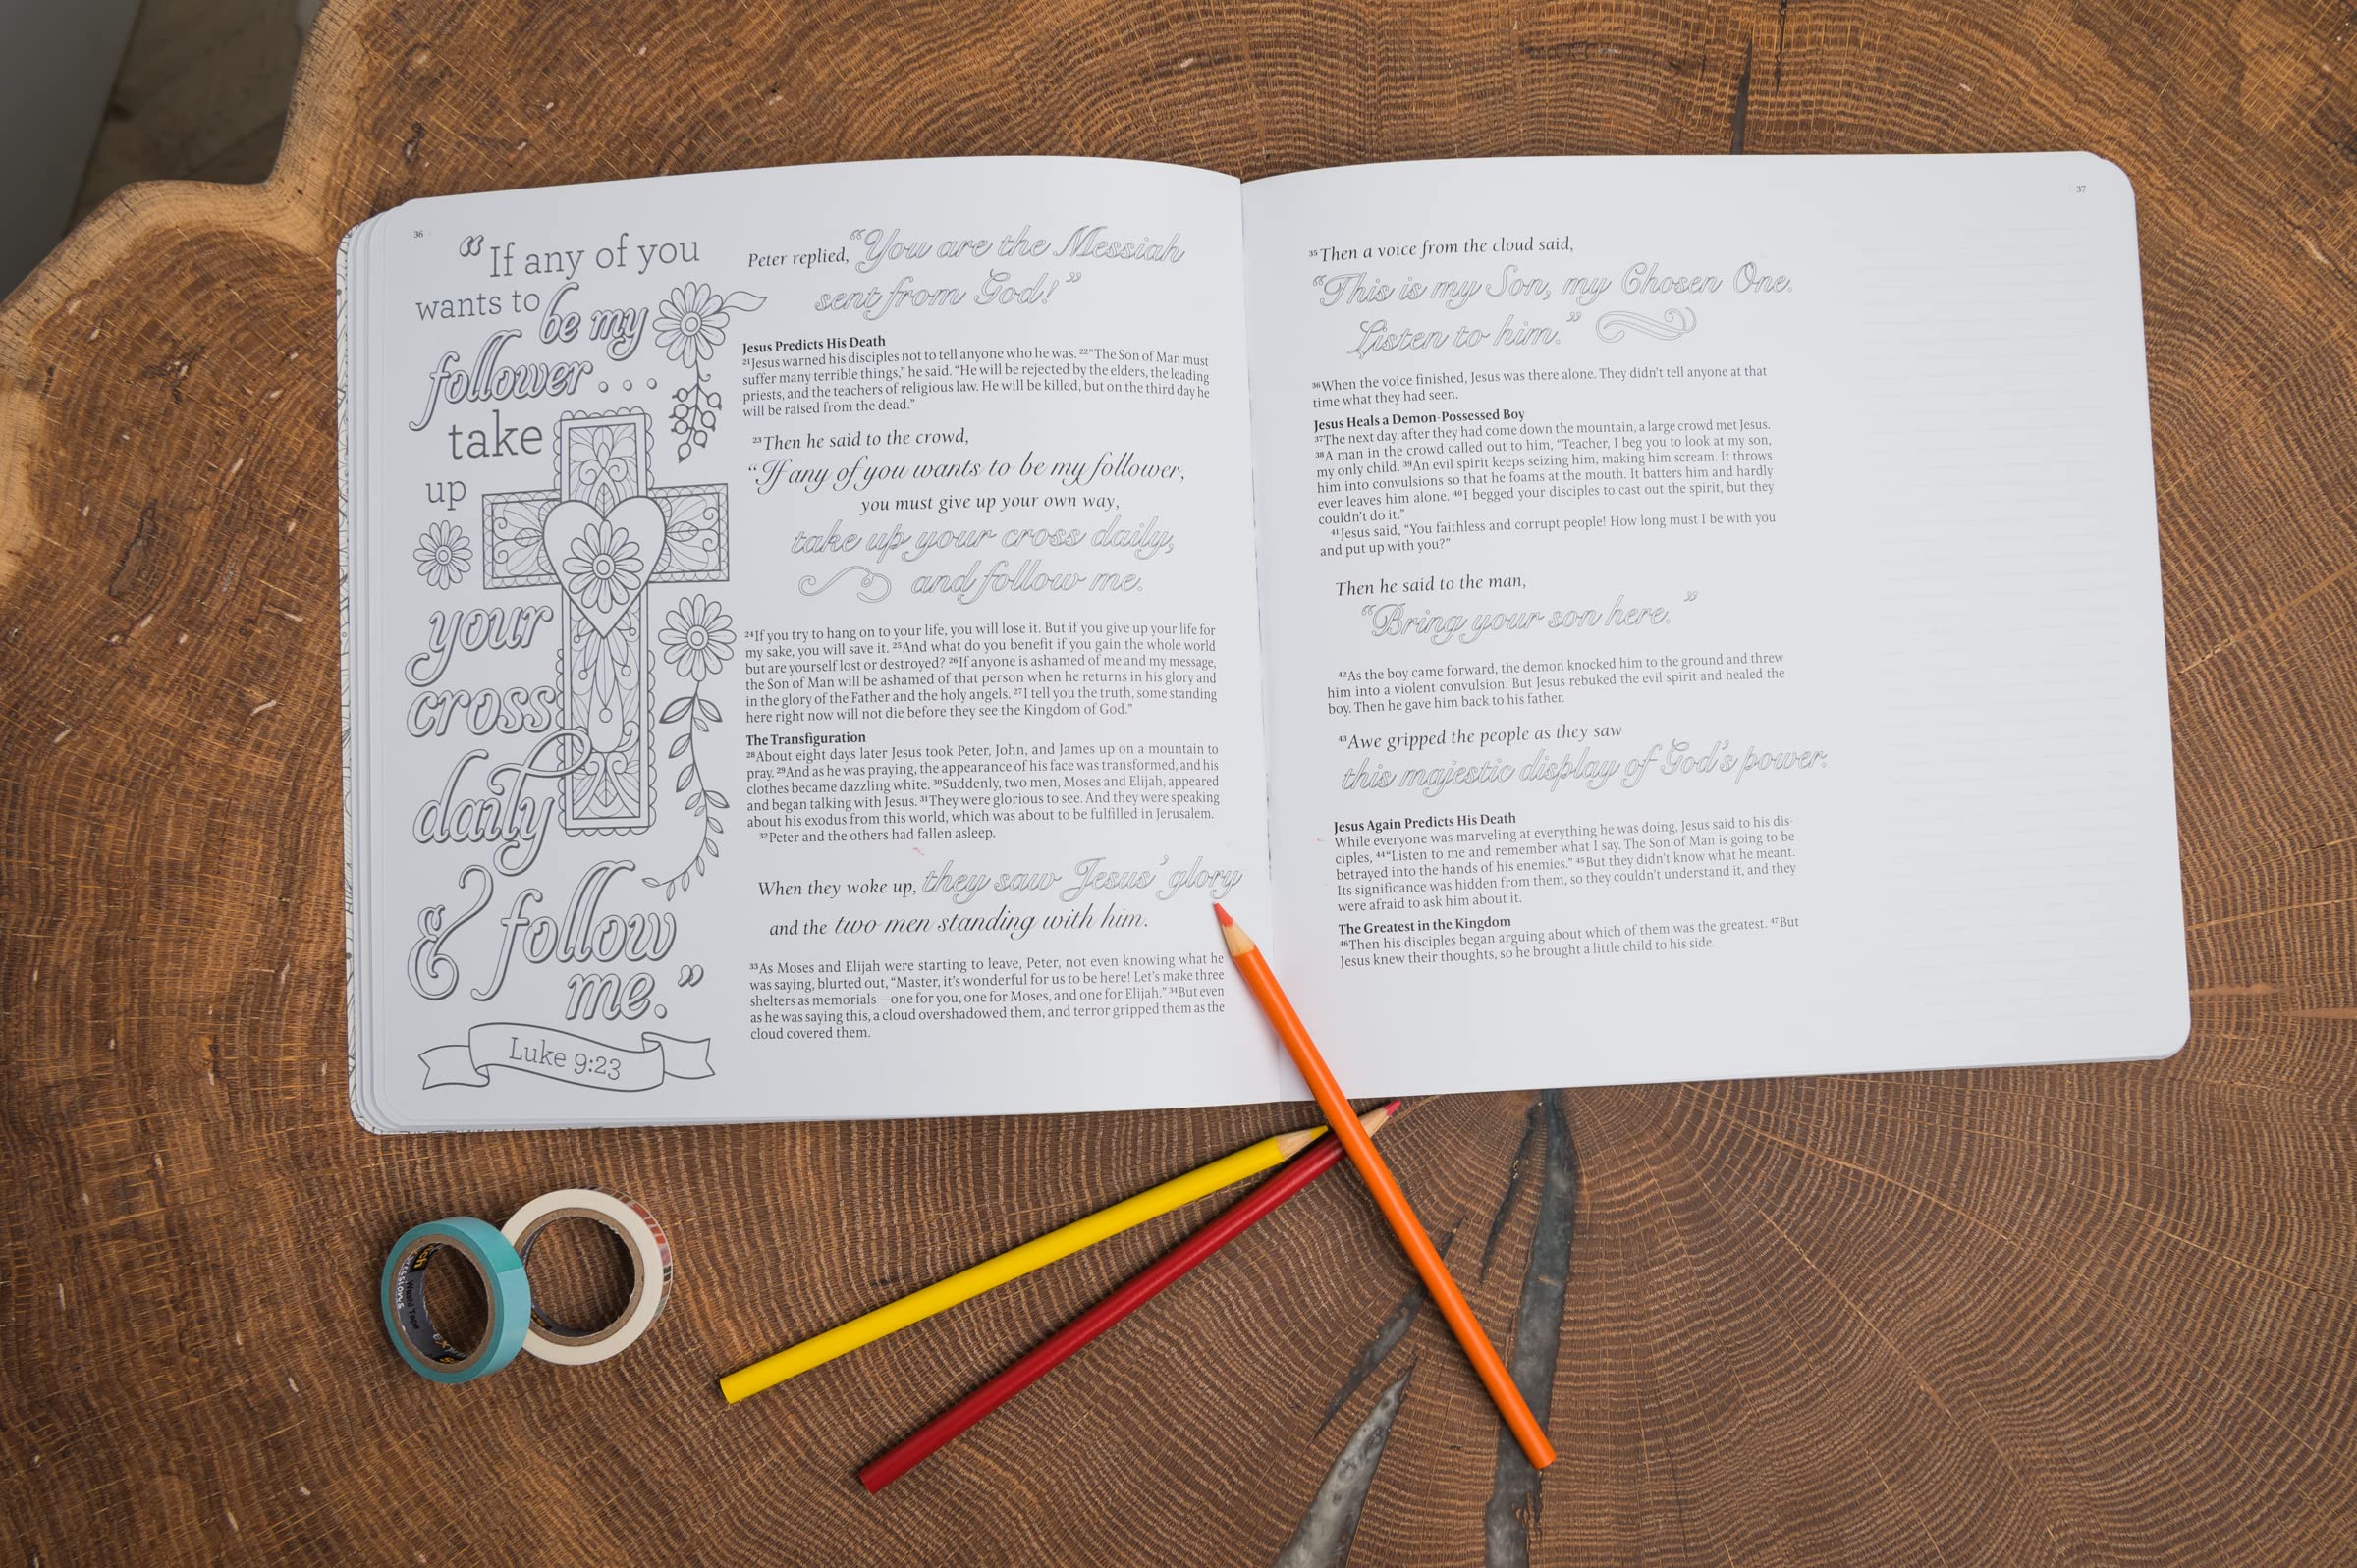 36
“If any of you
wants to be my
follower...
take
up
your
cross
daily
& follow
me.”
Luke 9:23
Peter replied, “You are the Messiah
sent from God!”
Jesus Predicts His Death
21Jesus warned his disciples not to tell anyone who he was. 22“The Son of Man must
suffer many terrible things,” he said. “He will be rejected by the elders, the leading
priests, and the teachers of religious law. He will be killed, but on the third day he
will be raised from the dead.”
23Then he said to the crowd,
“If any of you wants to be my follower,
you must give up your own way,
take up your cross daily,
and follow me.
24If you try to hang on to your life, you will lose it. But if you give up your life for
my sake, you will save it. 25And what do you benefit if you gain the whole world
but are yourself lost or destroyed? 26If anyone is ashamed of me and my message,
the Son of Man will be ashamed of that person when he returns in his glory and
in the glory of the Father and the holy angels. 27I tell you the truth, some standing
here right now will not die before they see the Kingdom of God.”
The Transfiguration
28About eight days later Jesus took Peter, John, and James up on a mountain to
pray. 29And as he was praying, the appearance of his face was transformed, and his
clothes became dazzling white. 30Suddenly, two men, Moses and Elijah, appeared
and began talking with Jesus. 31They were glorious to see. And they were speaking
about his exodus from this world, which was about to be fulfilled in Jerusalem.
32Peter and the others had fallen asleep.
When they woke up, they saw Jesus’ glory
and the two men standing with him.
33As Moses and Elijah were starting to leave, Peter, not even knowing what he
was saying, blurted out, “Master, it’s wonderful for us to be here! Let’s make three
shelters as memorials—one for you, one for Moses, and one for Elijah.” 34But even
as he was saying this, a cloud overshadowed them, and terror gripped them as the
cloud covered them.
37
35Then a voice from the cloud said,
“This is my Son, my Chosen One.
Listen to him.”
36When the voice finished, Jesus was there alone. They didn’t tell anyone at that
time what they had seen.
Jesus Heals a Demon-Possessed Boy
37The next day, after they had come down the mountain, a large crowd met Jesus.
38A man in the crowd called out to him, “Teacher, I beg you to look at my son,
my only child. 39An evil spirit keeps seizing him, making him scream. It throws
him into convulsions so that he foams at the mouth. It batters him and hardly
ever leaves him alone. 40I begged your disciples to cast out the spirit, but they
couldn’t do it.”
41Jesus said, “You faithless and corrupt people! How long must I be with you
and put up with you?”
Then he said to the man,
“Bring your son here.”
42As the boy came forward, the demon knocked him to the ground and threw
him into a violent convulsion. But Jesus rebuked the evil spirit and healed the
boy. Then he gave him back to his father.
43Awe gripped the people as they saw
this majestic display of God’s power.
Jesus Again Predicts His Death
While everyone was marveling at everything he was doing, Jesus said to his dis-
ciples, 44“Listen to me and remember what I say. The Son of Man is going to be
betrayed into the hands of his enemies.” 45But they didn’t know what he meant.
Its significance was hidden from them, so they couldn’t understand it, and they
were afraid to ask him about it.
The Greatest in the Kingdom
46Then his disciples began arguing about which of them was the greatest. 47But
Jesus knew their thoughts, so he brought a little child to his side.
Washi Tape